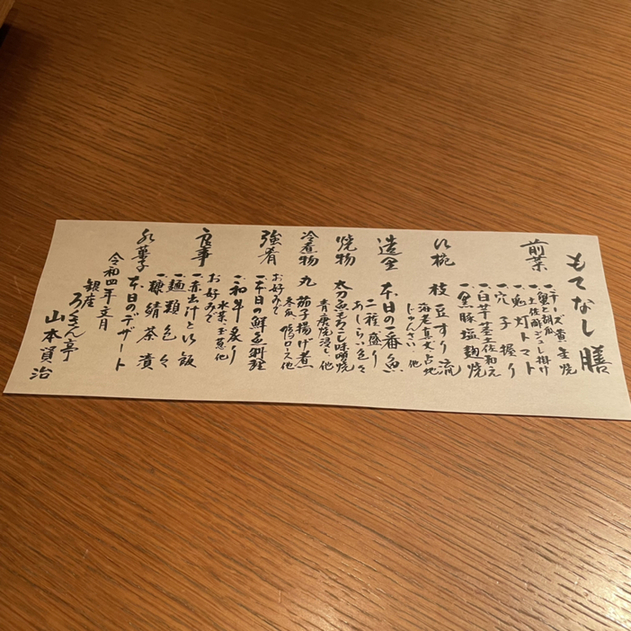 もてなし膳
前菜
一チーズ黄金焼
一蟹と胡瓜
土佐酢ジュレ掛け
一鬼灯トマト
一穴子握り
一白芋茎土佐和え
一黒豚塩麹焼
吸椀
枝豆すり流し
海老真丈占地
じゅんさい 他
造里
本日の一番魚
二種盛り
あしらい色々
焼物
太刀魚もろこし味噌焼
青唐焼浸し 他
冷煮物
丸茄子揚げ煮
冬瓜 鴨ロース 他
強肴
お好みで
一本日の鮮魚料理
一和牛炙り
水菜 玉葱 他
食事
お好みで
一赤出汁と御飯
一麺類色々
一糠鯖茶漬
水菓子
本日のデザート
令和四年
銀座
ろくさん亭
山本真治